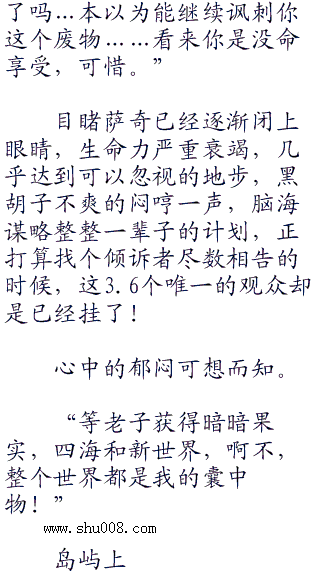 了吗…本以为能继续讽刺你
这个废物……看来你是没命
享受，可惜。”
目睹萨奇已经逐渐闭上
眼睛，生命力严重衰竭，几
乎达到可以忽视的地步，黑
胡子不爽的闷哼一声，脑海
谋略整整一辈子的计划，正
打算找个倾诉者尽数相告的
时候，这3.6个唯一的观众却
是已经挂了！
心中的郁闷可想而知。
“等老子获得暗暗果
实，四海和新世界，啊不，
整个世界都是我的囊中
物！”
www.shu008.com
岛屿上